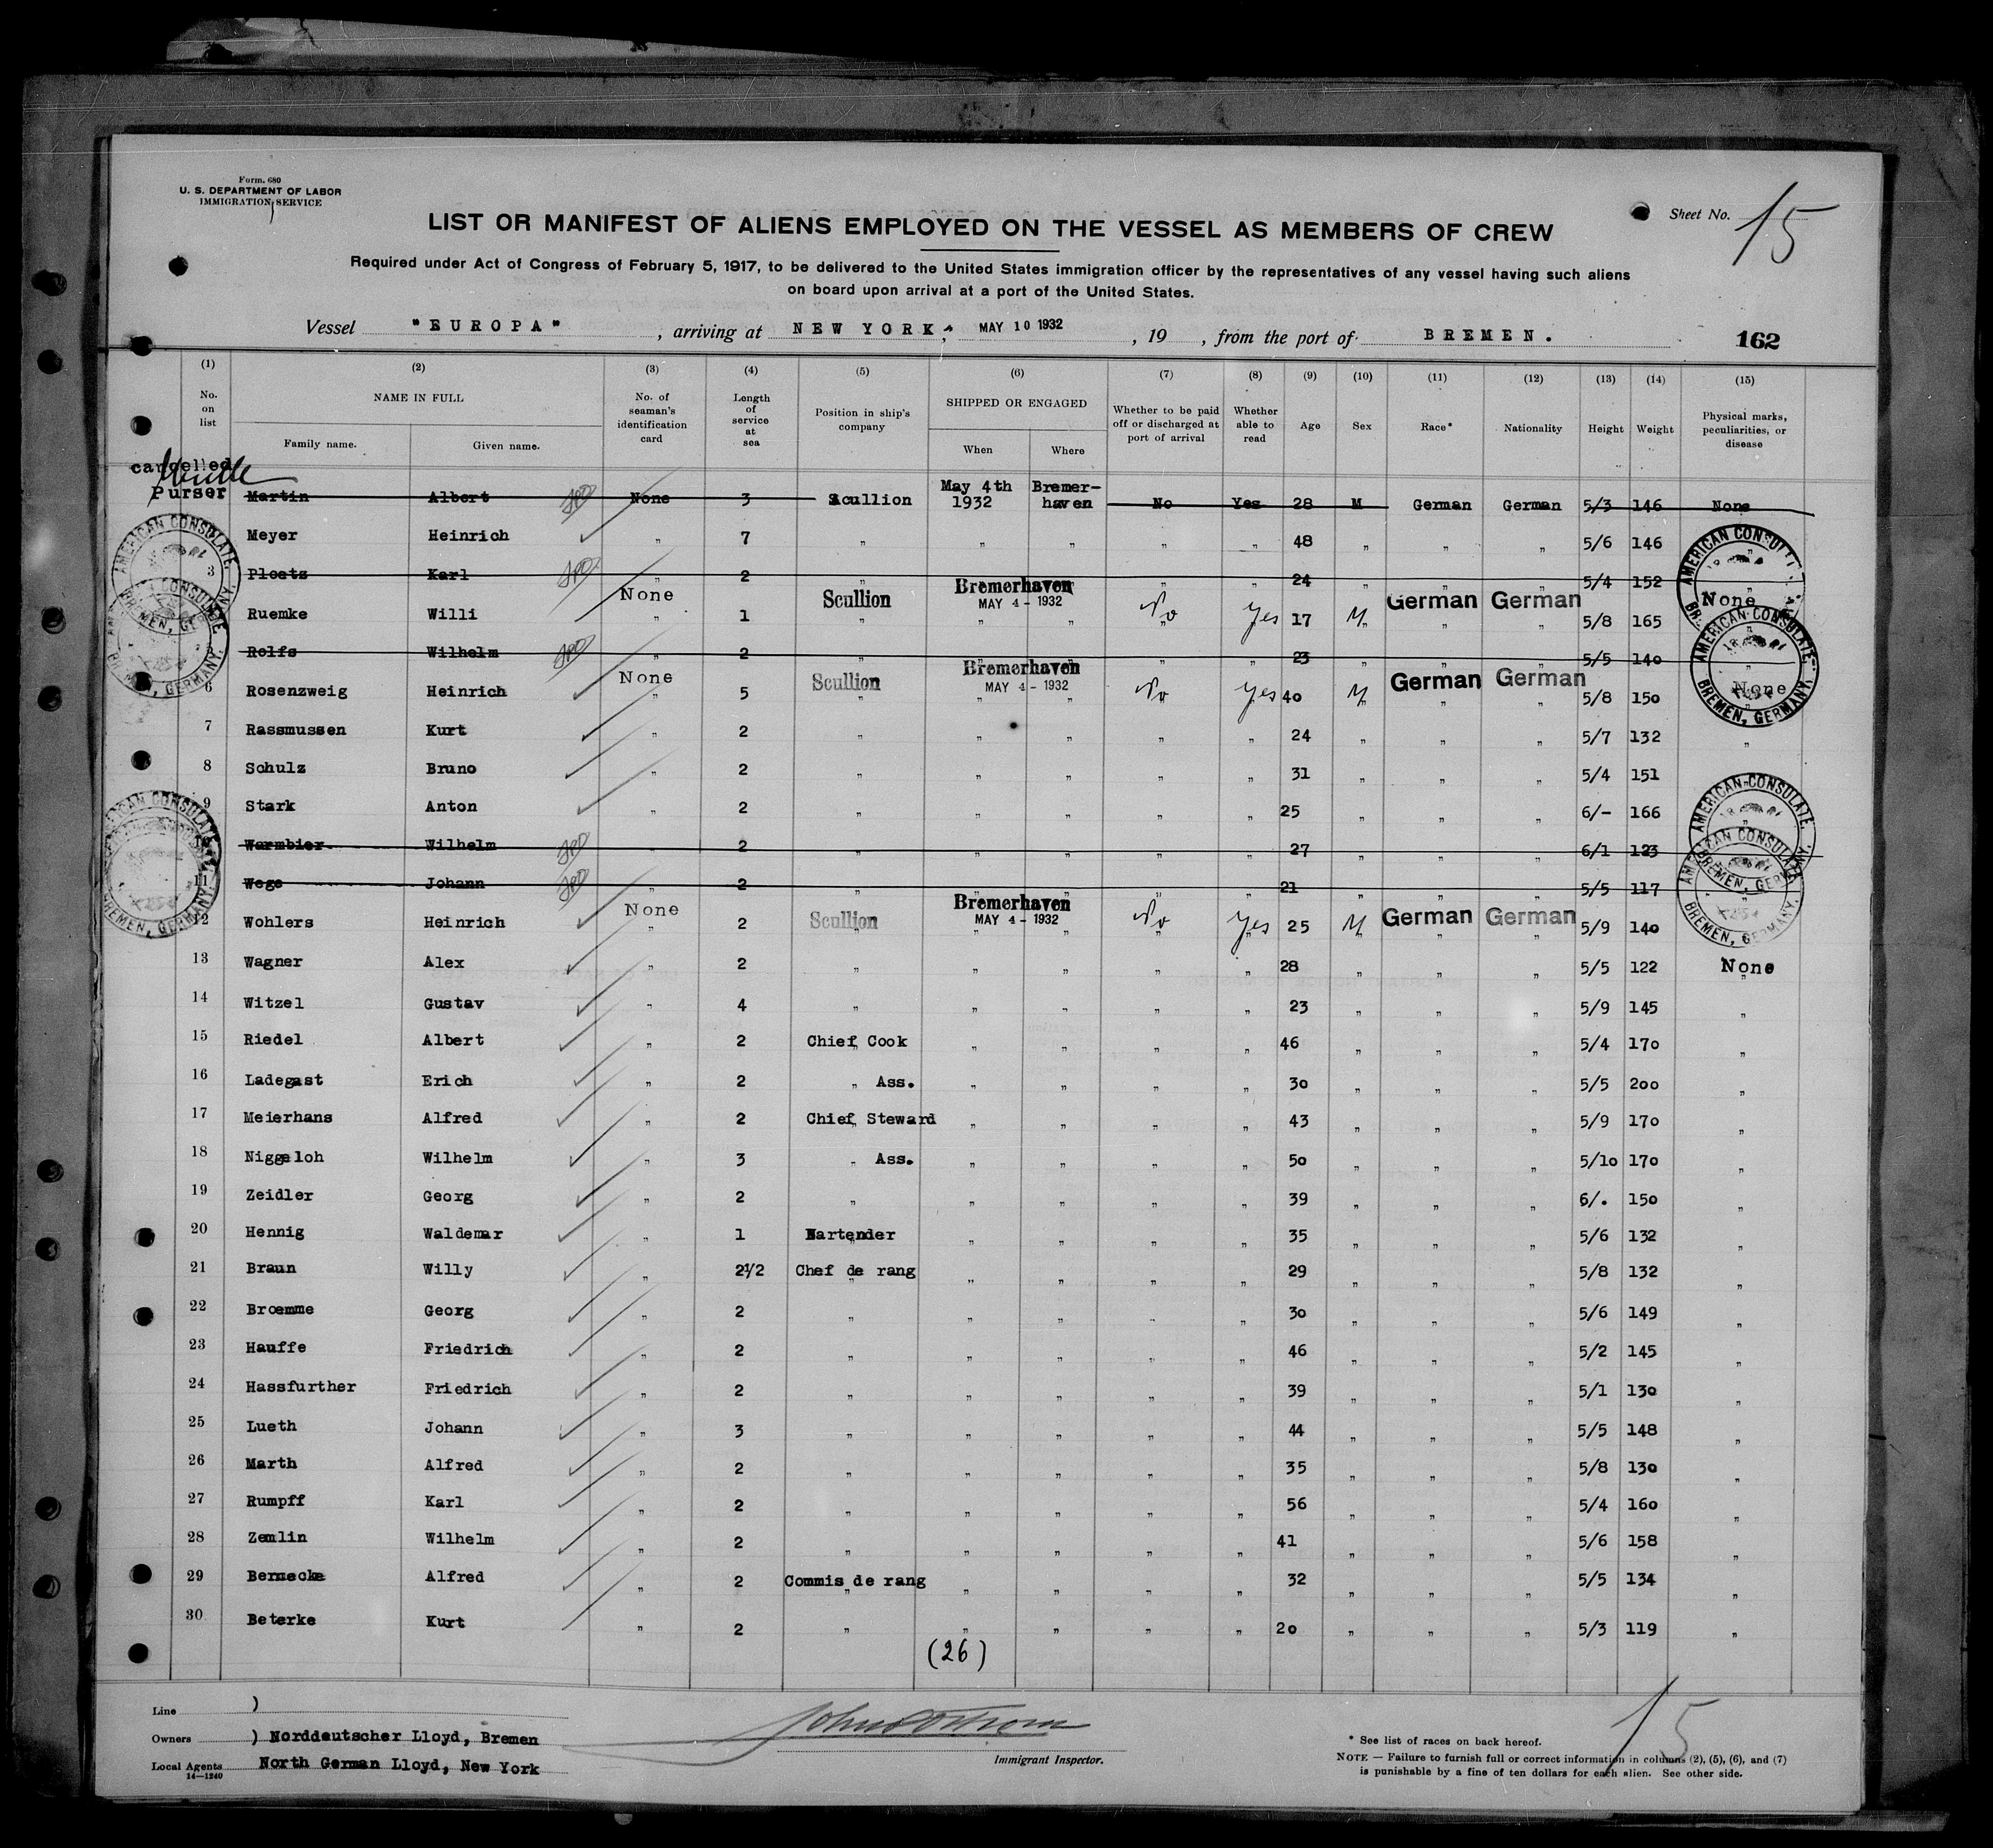 Form. 680
U. S. DEPARTMENT OF LABOR
IMMIGRATION SERVICE
Sheet No. 15
LIST OR MANIFEST OF ALIENS EMPLOYED ON THE VESSEL AS MEMBERS OF CREW
Required under Act of Congress of February 5, 1917, to be delivered to the United States immigration officer by the representatives of any vessel having such aliens
on board upon arrival at a port of the United States.
Vessel "EUROPA", arriving at NEW YORK, MAY 10 1932, 19 , from the port of BREMEN. 162
(1) (2) (3) (4) (5) (6) (7) (8) (9) (10) (11) (12) (13) (14) (15)
No. on list
NAME IN FULL
Family name. Given name.
No. of seaman's identification card
Length of service at sea
Position in ship's company
SHIPPED OR ENGAGED
When Where
Whether to be paid off or discharged at port of arrival
Whether able to read
Age Sex Race* Nationality Height Weight
Physical marks, peculiarities, or disease
cancelled
Purser Martin Albert None 3 Scullion May 4th 1932 Bremerhaven No Yes 28 M German German 5/3 146 None
Meyer Heinrich " 7 " " " " " 48 " " " 5/6 146 "
3 Ploetz Karl " 2 " " " " " 24 " " " 5/4 152
None Scullion Bremerhaven MAY 4 - 1932 No Yes M German German None
Ruemke Willi " 1 " " " " " 17 " " " 5/8 165 "
5 Rolfs Wilhelm " 2 " " " " " 23 " " " 5/5 140 "
None Scullion Bremerhaven MAY 4 - 1932 No Yes M German German None
6 Rosenzweig Heinrich " 5 " " " " " 40 " " " 5/8 150 "
7 Rassmussen Kurt " 2 " " " " " 24 " " " 5/7 132 "
8 Schulz Bruno " 2 " " " " " 31 " " " 5/4 151
9 Stark Anton " 2 " " " " " 25 " " " 6/- 166 "
10 Warmbier Wilhelm " 2 " " " " " 27 " " " 6/1 123
11 Wege Johann " 2 " " " " " 21 " " " 5/5 117
None Scullion Bremerhaven MAY 4 - 1932 No Yes M German German
12 Wohlers Heinrich " 2 " " " " " 25 " " " 5/9 140
13 Wagner Alex " 2 " " " " " 28 " " " 5/5 122 None
14 Witzel Gustav " 4 " " " " " 23 " " " 5/9 145 "
15 Riedel Albert " 2 Chief Cook " " " " 46 " " " 5/4 170 "
16 Ladegast Erich " 2 " Ass. " " " " 30 " " " 5/5 200 "
17 Meierhans Alfred " 2 Chief Steward " " " " 43 " " " 5/9 170 "
18 Niggeloh Wilhelm " 3 " Ass. " " " " 50 " " " 5/10 170 "
19 Zeidler Georg " 2 " " " " " 39 " " " 6/. 150 "
20 Hennig Waldemar " 1 Bartender " " " " 35 " " " 5/6 132 "
21 Braun Willy " 2½ Chef de rang " " " " 29 " " " 5/8 132 "
22 Broemme Georg " 2 " " " " " 30 " " " 5/6 149 "
23 Hauffe Friedrich " 2 " " " " " 46 " " " 5/2 145 "
24 Hassfurther Friedrich " 2 " " " " " 39 " " " 5/1 130 "
25 Lueth Johann " 3 " " " " " 44 " " " 5/5 148 "
26 Marth Alfred " 2 " " " " " 35 " " " 5/8 130 "
27 Rumpff Karl " 2 " " " " " 56 " " " 5/4 160 "
28 Zemlin Wilhelm " 2 " " " " " 41 " " " 5/6 158 "
29 Bernecke Alfred " 2 Commis de rang " " " " 32 " " " 5/5 134 "
30 Beterke Kurt " 2 " " " " " 20 " " " 5/3 119 "
(26)
AMERICAN CONSULATE, BREMEN, GERMANY.
AMERICAN CONSULATE, BREMEN, GERMANY.
AMERICAN CONSULATE, BREMEN, GERMANY.
AMERICAN CONSULATE, BREMEN, GERMANY.
Line )
Owners ) Norddeutscher Lloyd, Bremen
Local Agents North German Lloyd, New York
14—1240
Immigrant Inspector.
15
* See list of races on back hereof.
NOTE — Failure to furnish full or correct information in columns (2), (5), (6), and (7)
is punishable by a fine of ten dollars for each alien. See other side.